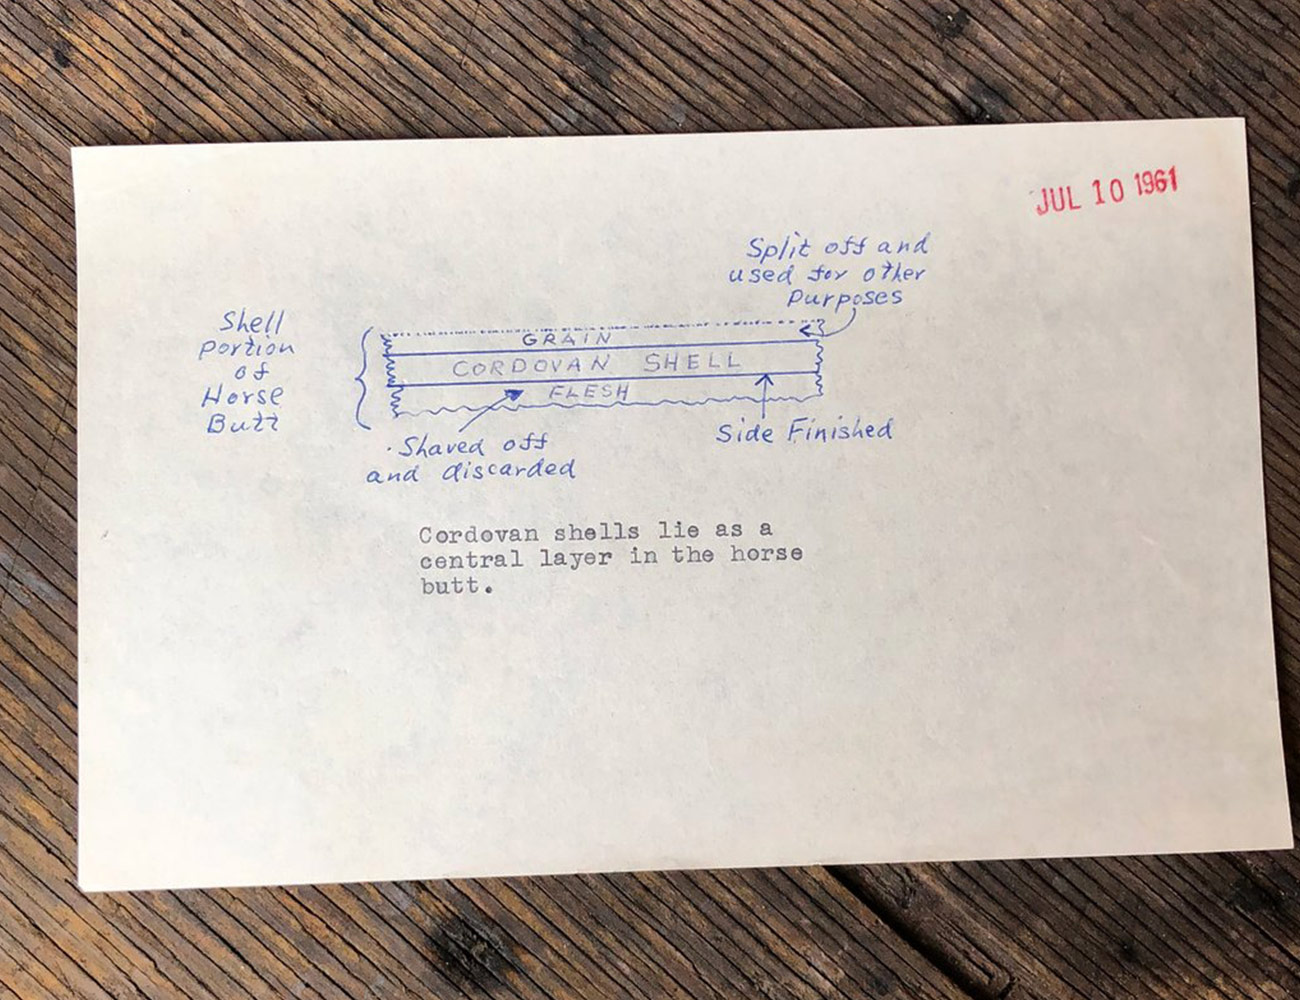 JUL 10 1961
Split off and
used for other
purposes
Shell
portion
of
Horse
Butt
GRAIN
CORDOVAN SHELL
FLESH
Shaved off
and discarded
Side Finished
Cordovan shells lie as a
central layer in the horse
butt.